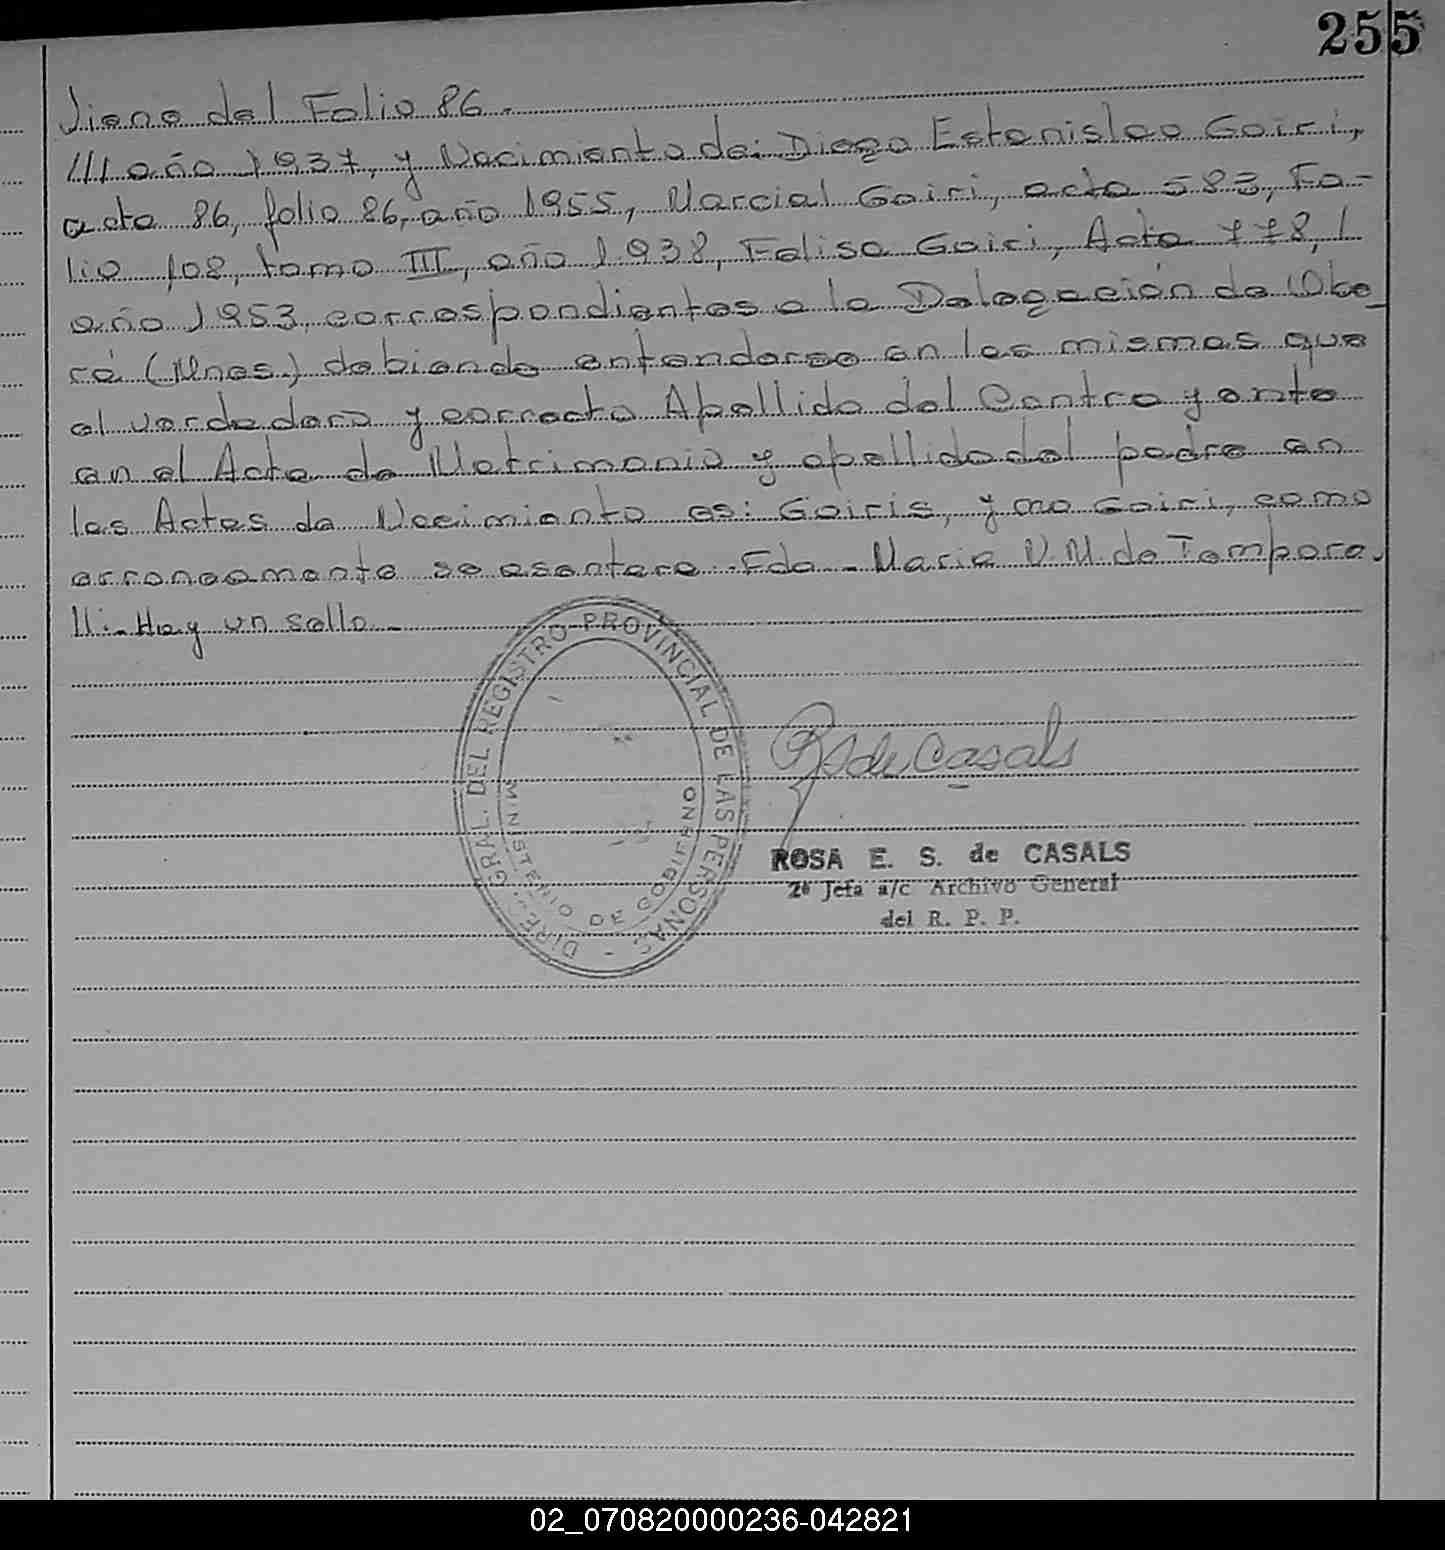 255
Viene del Folio 86.-
III año 1937, y Nacimiento de: Diego Estanislao Goiri,
acta 86, folio 86, año 1955, Marcial Goiri, acta 583, Fo-
lio 108, tomo III, año 1938, Felisa Goiri, Acta 778, /
año 1953, correspondientes a la Delegación de Obe_
rá (Mnes.) debiendo entenderse en las mismas que
el verdadero y correcto Apellido del Contrayente
en el Acta de Matrimonio y apellido del padre en
las Actas de Nacimiento es: Goiris, y no Goiri, como
erroneamente se asentara.- Fdo.- Maria N. M. de Tempora-
lli.- Hay un sello.-
DIREC. GRAL. DEL REGISTRO PROVINCIAL DE LAS PERSONAS -
MINISTERIO DE GOBIERNO
R S de Casals
ROSA E. S. de CASALS
2ª Jefa a/c Archivo General
del R. P. P.
02_070820000236-042821